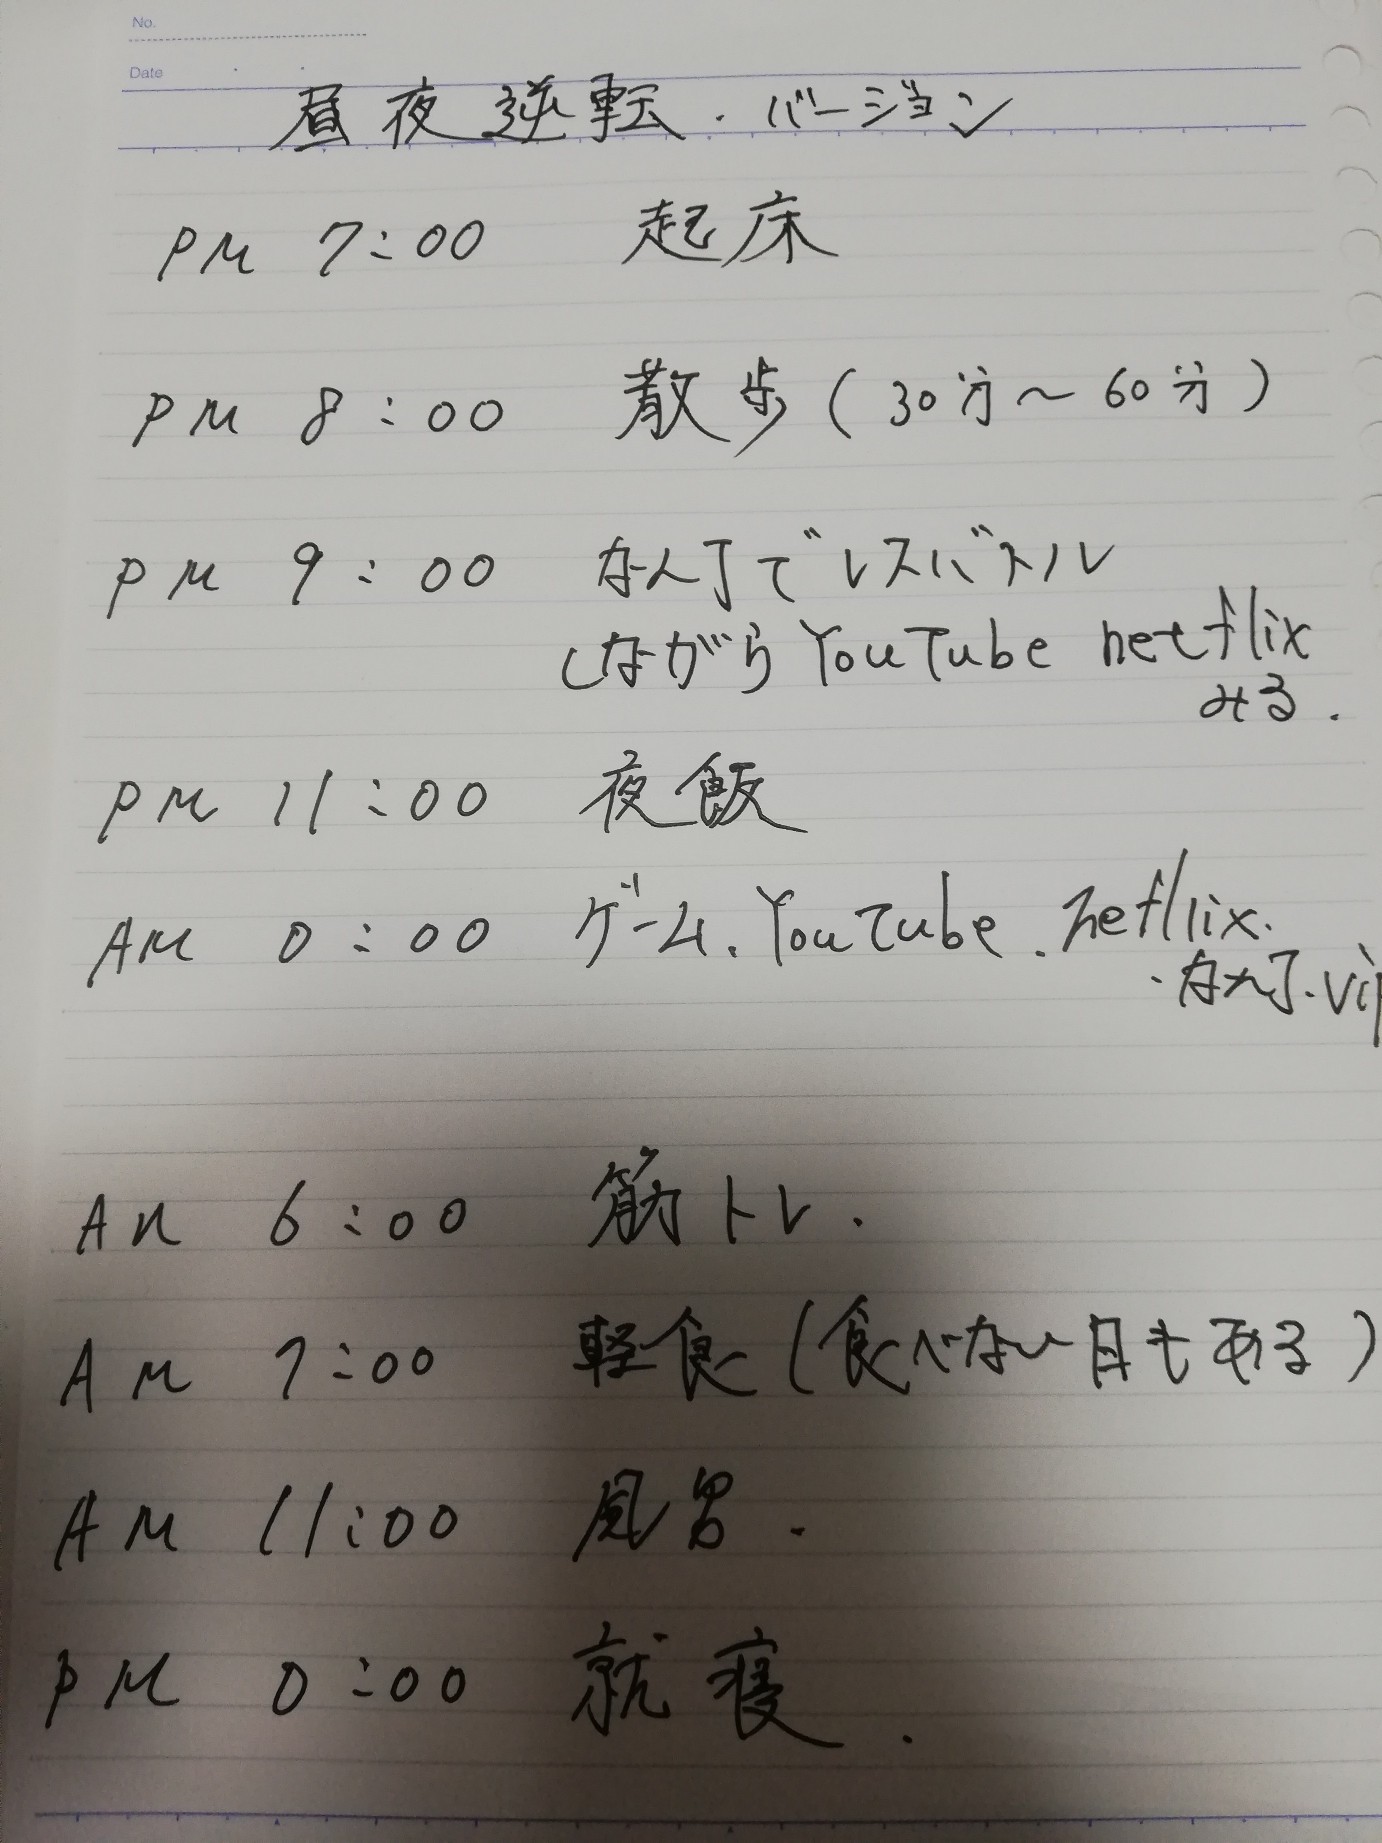 No.
Date
昼夜逆転．バージョン
PM 7:00 起床
PM 8:00 散歩(30分～60分)
PM 9:00 なんJでレスバトル
しながらYouTube netflix
みる．
PM 11:00 夜飯
AM 0:00 ゲーム．YouTube．netflix．
・なんJ．vip
AM 6:00 筋トレ．
AM 7:00 軽食(食べない日もある)
AM 11:00 風呂．
PM 0:00 就寝．